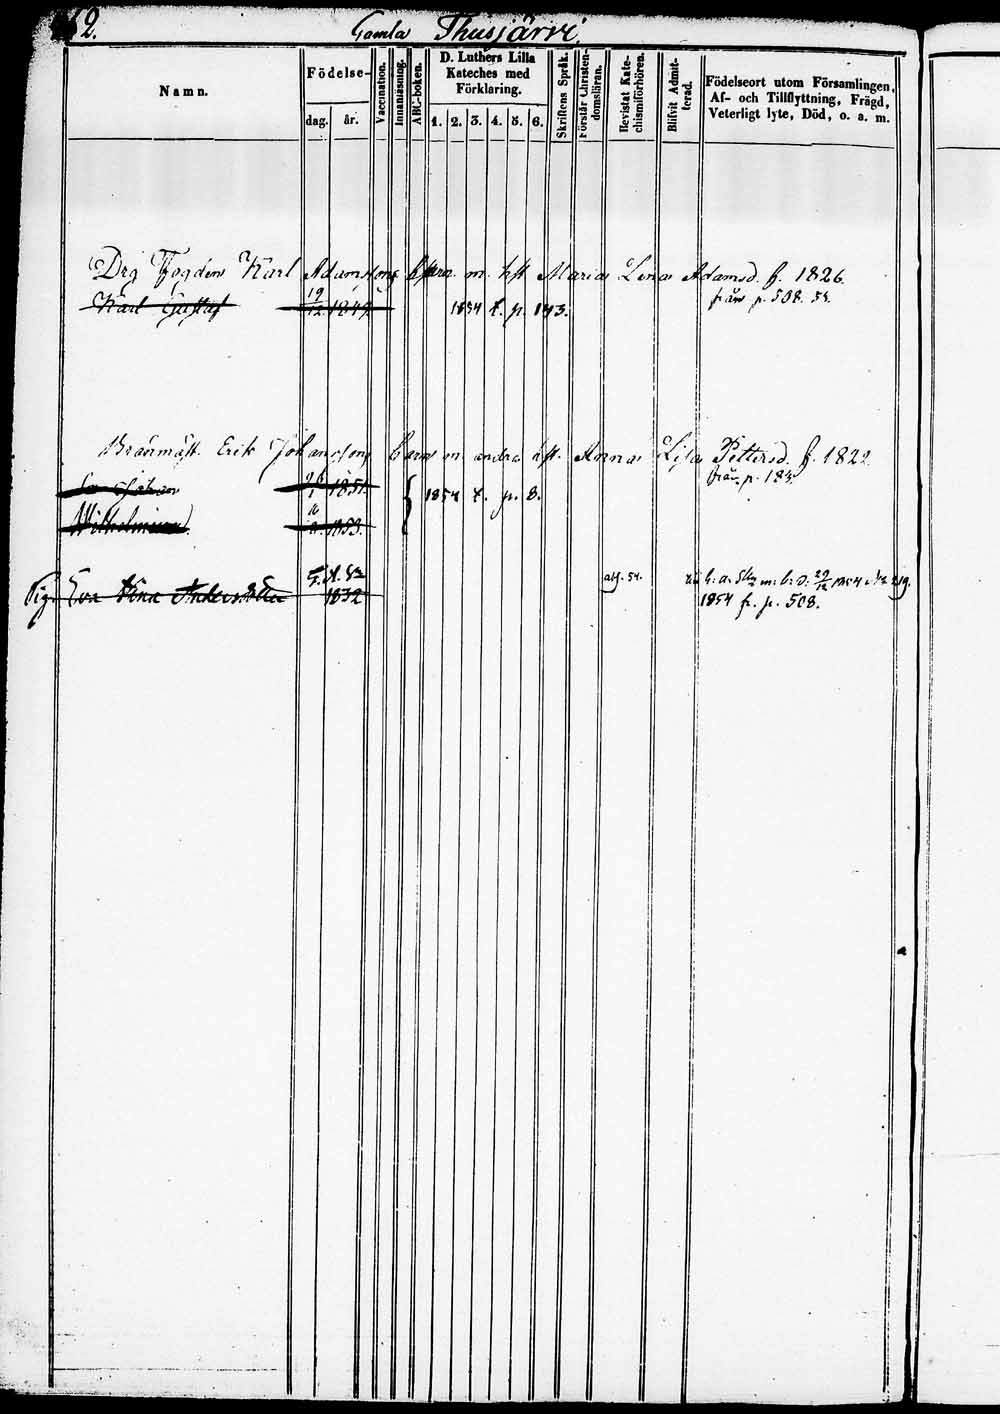 62. Gamla Thusjärvi.
Namn.
Födelse-
dag. år.
Vaccination.
Innanläsning.
ABC-boken.
D. Luthers Lilla
Kateches med
Förklaring.
1. 2. 3. 4. 5. 6.
Skriftens Språk.
Förstår Christen-
domsläran.
Bevistat Kate-
chismiförhören.
Blifvit Admit-
terad.
Födelseort utom Församlingen,
Af- och Tillflyttning, Frägd,
Veterligt lyte, Död, o. a. m.
Drg Fogden Karl Adamssons barn m. hst Maria Lena Adamsd. f. 1826.
Karl Gustaf 19/12 1849 1854 t. p. 143. från p. 508. 53.
Brännmäst. Erik Johanssons barn m. andra hst. Anna Lisa Pettersd. f. 1822
Johan 1851. 1854 t. p. 8. från p. 183
Wilhelmina 1853.
Pig. Eva Stina Andersdotter 1832 abs. 54. 29/12 1854 No 219.
1854 fr. p. 508.